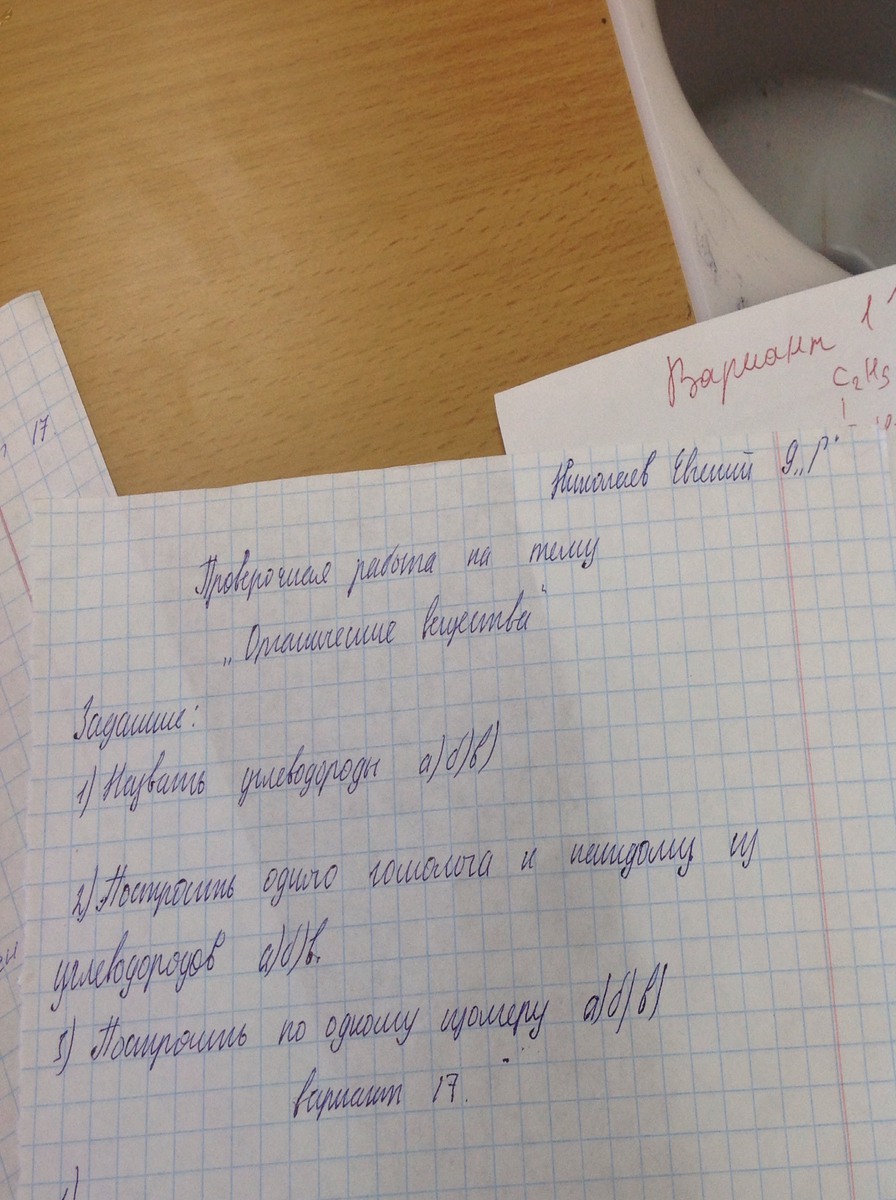 17
Вариант 1
C₂H₅
Николаев Евгений 9 „Г"
Проверочная работа на тему
„Органические вещества"
Задание:
1) Назвать углеводороды а) б) в)
2) Построить одного гомолога к каждому из
углеводородов а) б) в.
3) Построить по одному изомеру а) б) в)
вариант 17.
1)